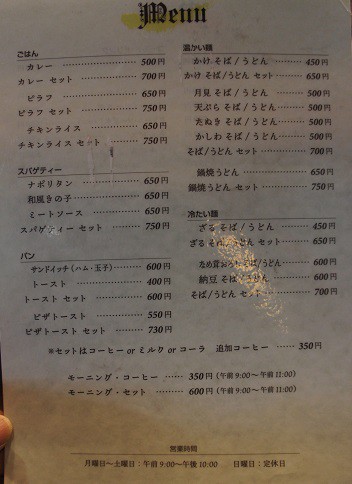 Menu
ごはん
カレー 500円
カレー セット 700円
ピラフ 650円
ピラフ セット 750円
チキンライス 650円
チキンライス セット 750円
スパゲティー
ナポリタン 650円
和風きの子 650円
ミートソース 650円
スパゲティー セット 750円
パン
サンドイッチ(ハム・玉子) 600円
トースト 400円
トースト セット 600円
ピザトースト 550円
ピザトースト セット 730円
温かい麺
かけ そば/うどん 450円
かけ そば/うどん セット 650円
月見 そば/うどん 500円
天ぷら そば/うどん 500円
たぬき そば/うどん 500円
かしわ そば/うどん 500円
そば/うどん セット 700円
鍋焼うどん 650円
鍋焼うどん セット 750円
冷たい麺
ざる そば/うどん 450円
ざる そば/うどん セット 650円
なめ茸おろしそば/うどん 600円
納豆 そば/うどん 600円
そば/うどん セット 700円
※セットはコーヒー or ミルク or コーラ 追加コーヒー 350円
モーニング・コーヒー 350円(午前9:00〜午前11:00)
モーニング・セット 600円(午前9:00〜午前11:00)
営業時間
月曜日〜土曜日:午前9:00〜午後10:00 日曜日:定休日